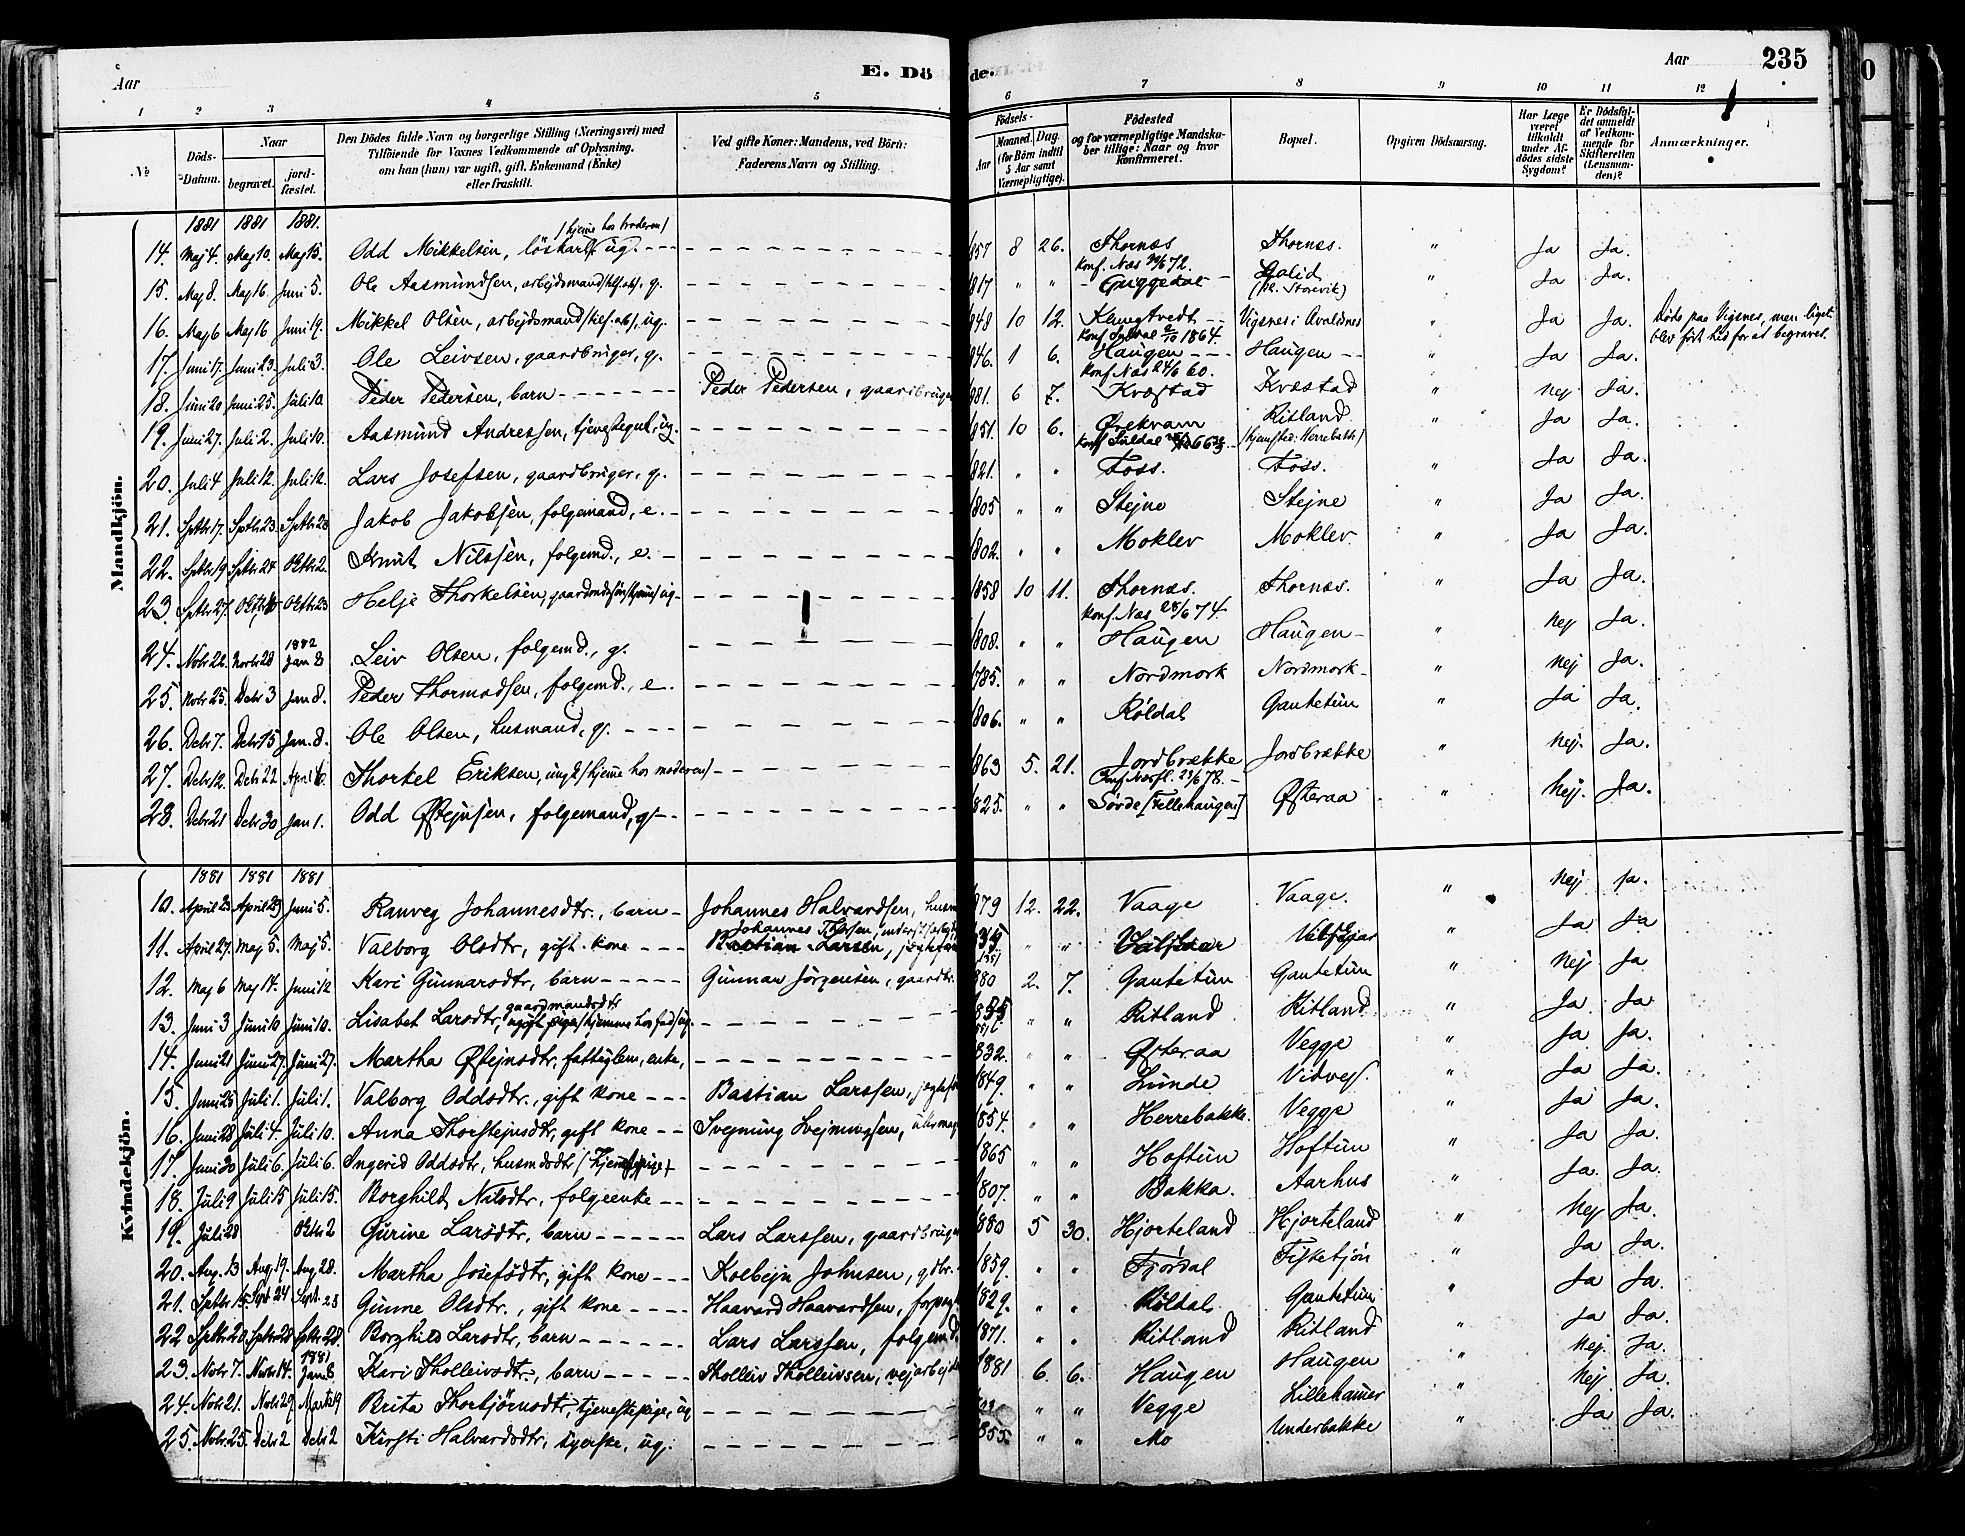 Aar E. Dö de. Aar 235
1 2 3 4 5 6 7 8 9 10 11 12
№ Döds-Datum. Naar begravet. jordfæstet. Den Dödes fulde Navn og borgerlige Stilling (Næringsvei) med Tilföiende for Voxnes Vedkommende af Oplysning, om han (hun) var ugift, gift, Enkemand (Enke) eller fraskilt. Ved gifte Koner: Mandens, ved Börn: Faderens Navn og Stilling. Födsels- Aar Maaned. Dag. (for Börn indtil 5 Aar samt Værnepligtige). Födested og for værnepligtige Mandskaber tillige: Naar og hvor Konfirmeret. Bopæl. Opgiven Dödsaarsag. Har Læge været tilkaldt under Afdödes sidste Sygdom? Er Dödsfaldet anmeldt af Vedkommende for Skifteretten (Lensmanden)? Anmærkninger.
Mandkjön.
1881 1881 1881.
14. Maj 4. Maj 10. Maj 15. Odd Mikkelsen, löskarl, ug. /hjemme hos broderen/ 1857 8 26. Thornæs Thornæs. " Ja Ja.
Konf. Næs 72.
15. Maj 8. Maj 16. Juni 5. Ole Aasmundsen, arbejdsmand, g. 1817 " " Guggedal Lalid (pl. Storvik) " Ja Ja.
16. Maj 6 Maj 16 Juni 19. Mikkel Olsen, arbejdsmand, ug. 1848 10 12. Klungtvedt Vigsnes i Avaldsnes Ja Ja. Döde paa Vigsnes, men liget blev fört hid for at begraves.
Konf. Suldal 2/10 1864.
17. Juni 17. Juni 23. Juli 3. Ole Leivsen, gaardbruger, g. 1846. 1 6. Haugen Haugen " Ja Ja.
Konf. Næs 24/6 60.
18. Juni 20 Juni 25. Juli 10. Peder Pedersen, barn Peder Pedersen, gaardbruger 1881. 6 7. Kvæstad Kvæstad " Nej Ja.
19. Juni 27. Juli 2. Juli 10. Aasmund Andressen, tjenestegut, ug. 1851. 10 6. Ørekvam Ritland /hjemsted: Herrebakk/ " Ja Ja.
Konf. Suldal
20. Juli 4 Juli 12. Juli 12. Lars Josefsen, gaardbruger, g. 1821. " " Foss. Foss. " Ja Ja.
21. Septbr 17. Septbr 23. Septbr 23 Jakob Jakobsen, folgemand, e. 1805 " " Stejne Stejne " Ja Ja.
22. Septbr 19 Septbr 24 Oktbr 2. Knut Nilssen, folgemd., e. 1802. " " Moklev Moklev " Ja Ja.
23. Septbr 27. Oktbr Oktbr 23 Helje Thorkelsen, /hjemme/ ug. 1858 10 11. Thornæs. Thornæs. " Ja Ja.
Konf. Næs 28/6 74.
24. Novbr 22. Novbr 28 1882 Jan 8 Leiv Olsen, folgemd., g. 1808. " " Haugen Haugen " Nej Ja.
25. Novbr 25. Debr 3 Jan 8. Peder Thormodsen, folgemd., e. 1785. " " Nordmork Nordmork " Nej Ja.
26. Debr 7. Debr 15 Jan. 8. Ole Olsen, husmand, g. 1806. " " Röldal Gautetun " Ja Ja.
27. Debr 12. Debr 22 April 10. Thorkel Eriksen, ungk /hjemme hos moderen/ 1863 5. 21. Jordbrække Jordbrække " Nej. Ja.
Konf. 78.
28. Debr 21 Debr 30 Jan 1. Odd Østejnsen, folgemand, g. 1825. " " Sörde [Fellehaugen] Østeraa " Nej. Ja.
Kvindekjön.
1881 1881 1881
10. April 23 April 29 Juni 5. Ranveg Johannesdtr., barn Johannes Halvardsen, husm 1879 12. 22. Vaage Vaage. " Nej Ja.
11. April 27. Maj 5. Maj 5. Valborg Olsdtr, gift kone Bastian Larsen, " " " Ja Ja
12. Maj 6 Maj 14. Juni 12 Kari Gunnarsdtr, barn Gunnar Jörgensen, gaardbr. 1880 2. 7. Gautetun Gautetun " Nej Ja
13. Juni 3 Juni 10 Juni 10. Lisabet Larsdtr, gaardmandsdtr ug. 1835 " " Ritland Ritland " Ja Ja
14. Juni 21 Juni 27. Juni 27. Martha Østejnsdtr, fattiglem, enke, 1832. " " Østeraa Vegge " Ja Ja.
15. Juni 25 Juli 1. Juli 1. Valborg Oddsdtr., gift kone Bastian Larssen, 1849. " " Lunde " Ja Ja.
16. Juni 28 Juli 4. Juli 10. Anna Thorstejnsdtr, gift kone Svejnung Svejnungsen, 1854. " " Herrebakke. Vegge " Ja Ja.
17. Juni 30 Juli 6. Juli 6. Ingerid Oddsdtr, husmdsdtr 1865 " " Hoftun Hoftun " Ja Ja.
18. Juli 9 Juli 15 Juli 15. Borghild Nilsdtr, folgeenke 1807. " " Bakka. Aarhus " Ja. Ja.
19. Juli 28 Oktbr 2 Gurine Larsdtr, barn Lars Larssen, gaardbruger 1880 5 30. Hjorteland Hjorteland " Nej Ja.
20. Aug. 13 Aug. 19. Aug. 28. Martha Josefsdtr, gift kone Kolbejn Johnsen, gdbr. 1859. " " Fjordal Fisketjön " Ja Ja.
21. Septbr 15. Sept 24 Sept. 25 Gunne Olsdtr., gift kone Haavard Haavardsen, 1829. " " Röldal Gautetun " Ja Ja.
22 Septbr 20. Septbr 28 Septbr 28. Borghild Larsdtr, barn Lars Larssen, folgemd. 1871. " " Ritland Ritland " Ja Ja.
23. Novbr 7. Novbr 14. Jan 8 Kari Tholleivsdtr, barn Tholleiv Tholleivsen, vejarbejder 1881 6. 6. Haugen Haugen " Nej. Ja.
24. Novbr 21. Novbr 29 Marts 19 Brita Thorbjörnsdtr, tjenestepige, ug " " Vegge Lillehamer " Nej. Ja.
25. Novbr 25. Debr 2 Debr 2 Kirsti Halvardsdtr, ug. 1855. " " Mo Underbakke " Ja Ja.